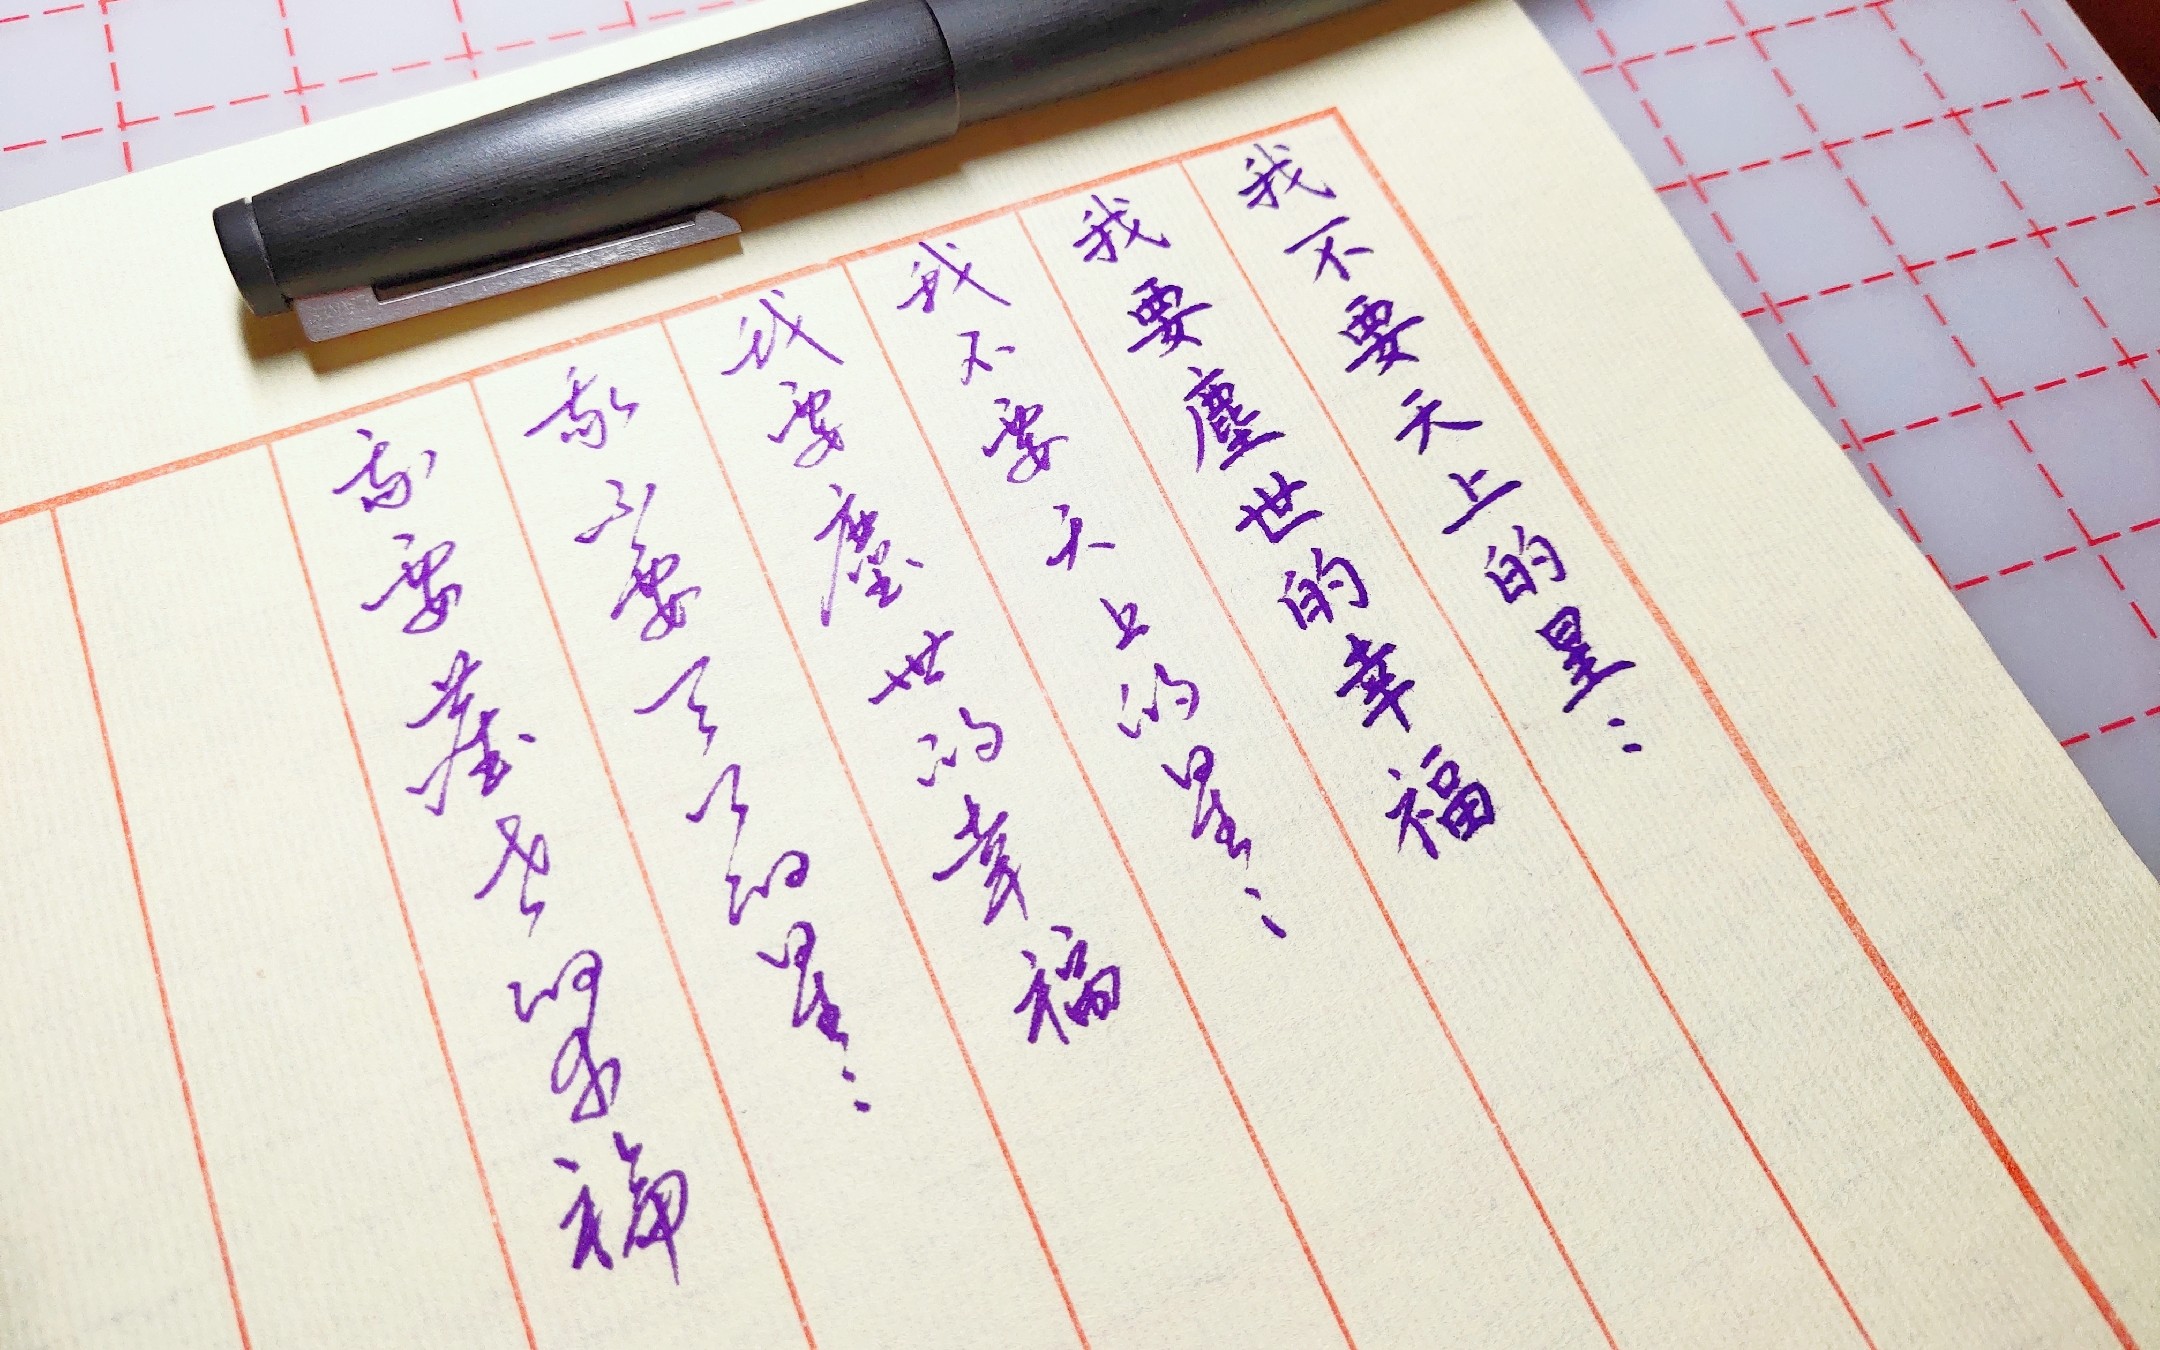 我不要天上的星:
我要塵世的幸福
我不要天上的星:
我要塵世的幸福
我不要天上的星:
我要塵世的幸福